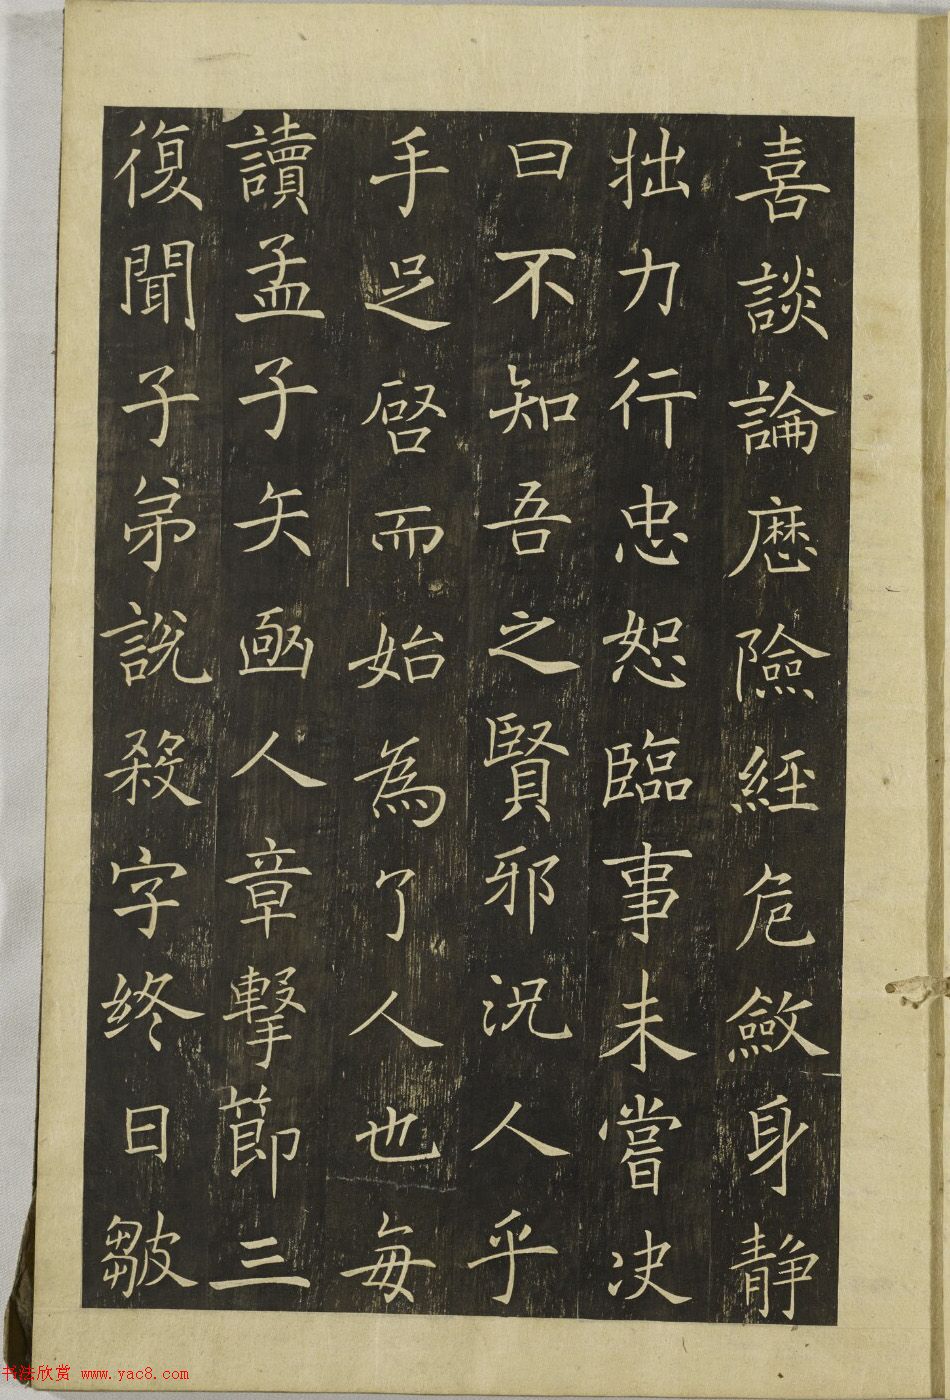 喜談論歷險經危斂身静
拙力行忠恕臨事未嘗决
曰不知吾之賢邪況人乎
手足啓而始為了人也每
讀孟子矢函人章擊節三
復聞子弟說殺字終日皺
书法欣赏 www.yac8.com